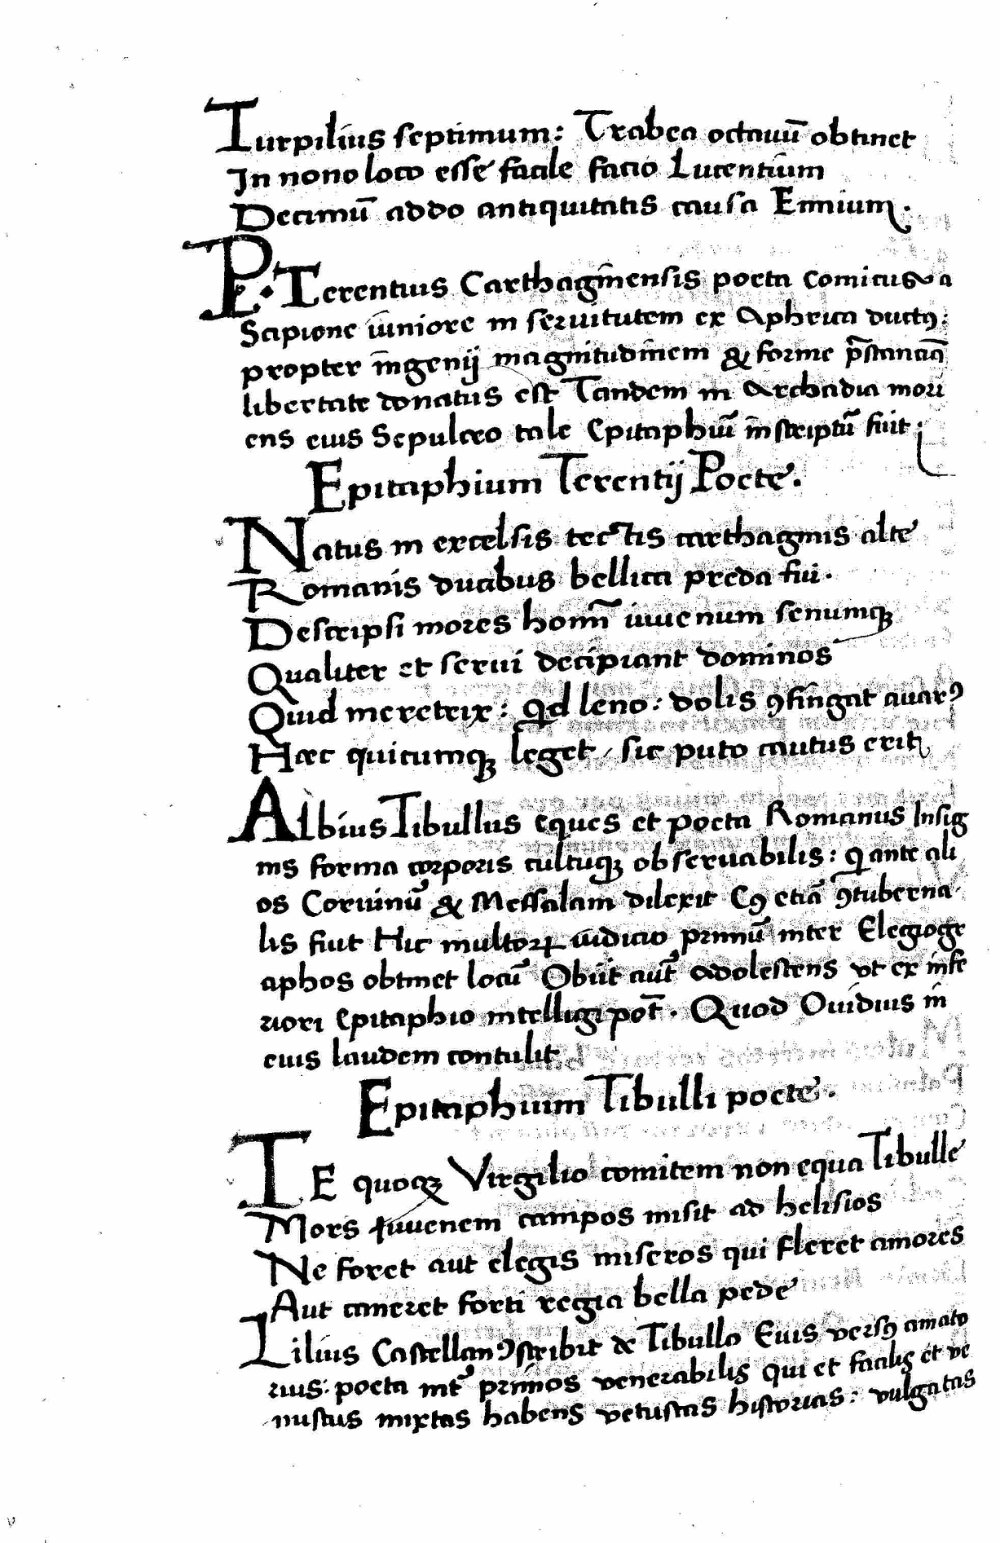 Turpilius septimum: Trabea octauū obtinet
In nono loco esse facile facio Lucentiūm
Decimū addo antiquitatis causa Ennium.
P. Terentius Carthagīnensis poeta comicus a
Scipione iūniore in seruitutem ex Aphrica ductꝰ:
propter īngenij magnitudīnem & forme p̄stanciā
libertate donatus est Tandem in Archadia mori
ens eius Sepulcro tale Epitaphiū īnscriptū fuit.
Epitaphium Terentij Poete.
Natus in excelsis tectis carthaginis alte
Romanis ducibus bellica preda fui.
Descripsi mores homī iuuenum senumqꝫ
Qualiter et serui decipiant dominos
Quid meretrix: Qd leno: dolis ꝯfīngat auarꝰ
Haec quicumqꝫ leget, sic puto cautus erit
Albius Tibullus eques et poeta Romanus Insig
nis forma corporis cultuqꝫ obseruabilis: Q ante ali
os Coruinū & Messalam dilexit Cꝰ etiā ꝯtuberna
lis fiut Hic multoꝝ iūdicio primū inter Elegiogr
aphos obtinet locū Obiit aut̄ adolescens vt ex īnfe
riori Epitaphio intelligi pot̄. Quod Ouidius in
eius laudem contulit
Epitaphium Tibulli poete.
TE quoqꝫ Virgilio comitem non equa Tibulle
Mors Iuuenem campos misit ad helisios
Ne foret aut elegis miseros qui fleret amores
Aut caneret forti regia bella pede
Lilius Castellan ꝯscribit de Tibullo Eius versꝰ amato
rius. poeta int̄ prīmos venerabilis qui et facilis et ve
nustus mixtas habens vetustas historias: vulgatas